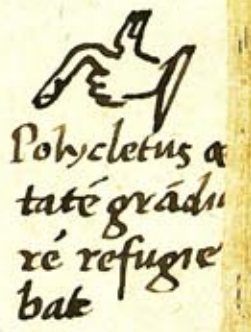 Polycletus æ
tatē grādiu
rē refugie
bat